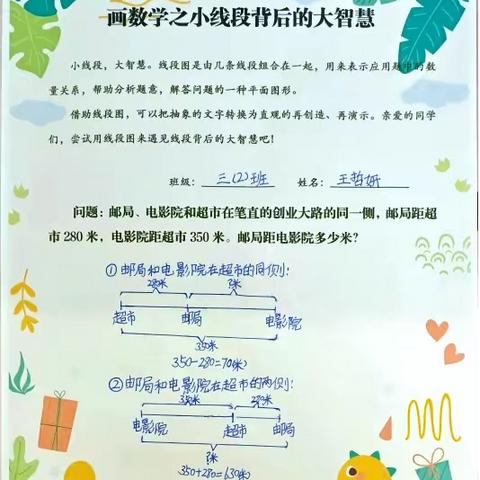 画数学之小线段背后的大智慧
小线段，大智慧。线段图是由几条线段组合在一起，用来表示应用题中的数
量关系，帮助分析题意，解答问题的一种平面图形。
借助线段图，可以把抽象的文字转换为直观的再创造、再演示。亲爱的同学
们，尝试用线段图来遇见线段背后的大智慧吧!
班级: 三(2)班 姓名: 王哲妍
问题：邮局、电影院和超市在笔直的创业大路的同一侧，邮局距超
市 280 米，电影院距超市 350 米。邮局距电影院多少米?
①邮局和电影院在超市的同侧:
280米 ?米
超市 邮局 电影院
350米
350-280=70(米)
②邮局和电影院在超市的两侧:
350米 280米
电影院 超市 邮局
?米
350+280=630(米)